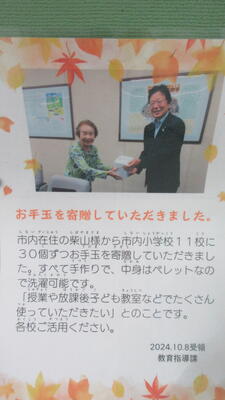 お手玉を寄贈していただきました。
市内在住の柴山様から市内小学校11校に
30個ずつお手玉を寄贈していただきまし
た。すべて手作りで、中身はペレットなの
で洗濯可能です。
「授業や放課後子ども教室などでたくさん
使っていただきたい」とのことです。
各校ご活用ください。
2024.10.8受領
教育指導課